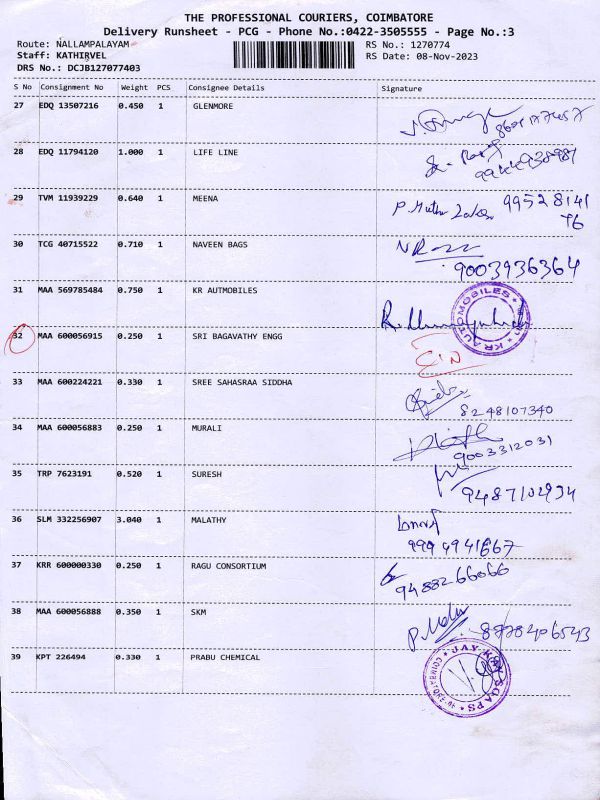 THE PROFESSIONAL COURIERS, COIMBATORE
Delivery Runsheet - PCG - Phone No.:0422-3505555 - Page No.:3
Route: NALLAMPALAYAM RS No.: 1270774
Staff: KATHIRVEL RS Date: 08-Nov-2023
DRS No.: DCJB127077403
S No Consignment No Weight PCS Consignee Details Signature
27 EDQ 13507216 0.450 1 GLENMORE
28 EDQ 11794120 1.000 1 LIFE LINE
29 TVM 11939229 0.640 1 MEENA 99528141
76
30 TCG 40715522 0.710 1 NAVEEN BAGS
9003936364
31 MAA 569785484 0.750 1 KR AUTMOBILES
KR AUTOMOBILES
32 MAA 600056915 0.250 1 SRI BAGAVATHY ENGG
33 MAA 600224221 0.330 1 SREE SAHASRAA SIDDHA
8248107340
34 MAA 600056883 0.250 1 MURALI
9003312031
35 TRP 7623191 0.520 1 SURESH
36 SLM 332256907 3.040 1 MALATHY
9994941667
37 KRR 600000330 0.250 1 RAGU CONSORTIUM
9488266066
38 MAA 600056888 0.350 1 SKM
8778406543
39 KPT 226494 0.330 1 PRABU CHEMICAL